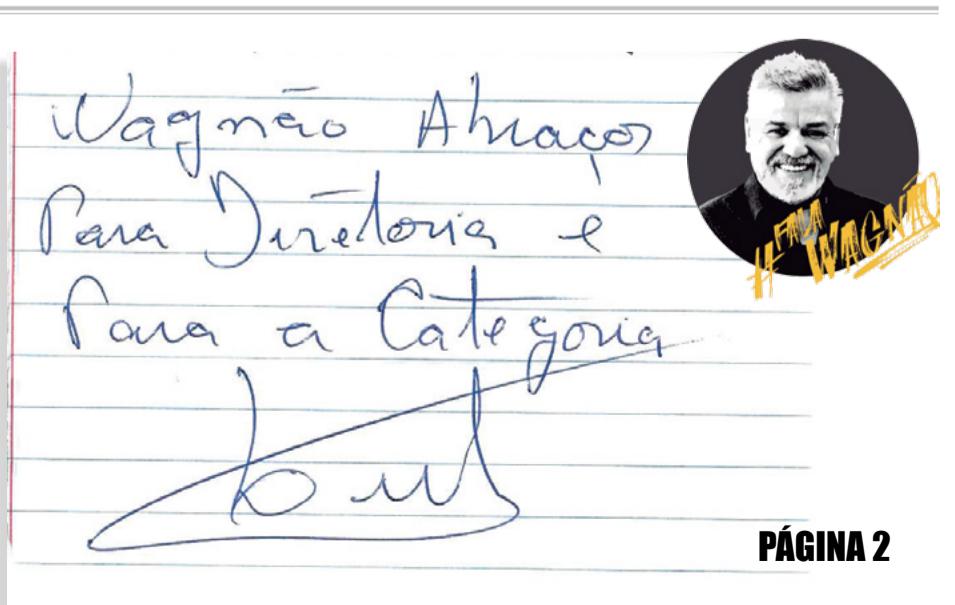 Wagnão Abraços
Para Diretoria e
Para a Categoria
#FALA
WAGNÃO
PÁGINA 2